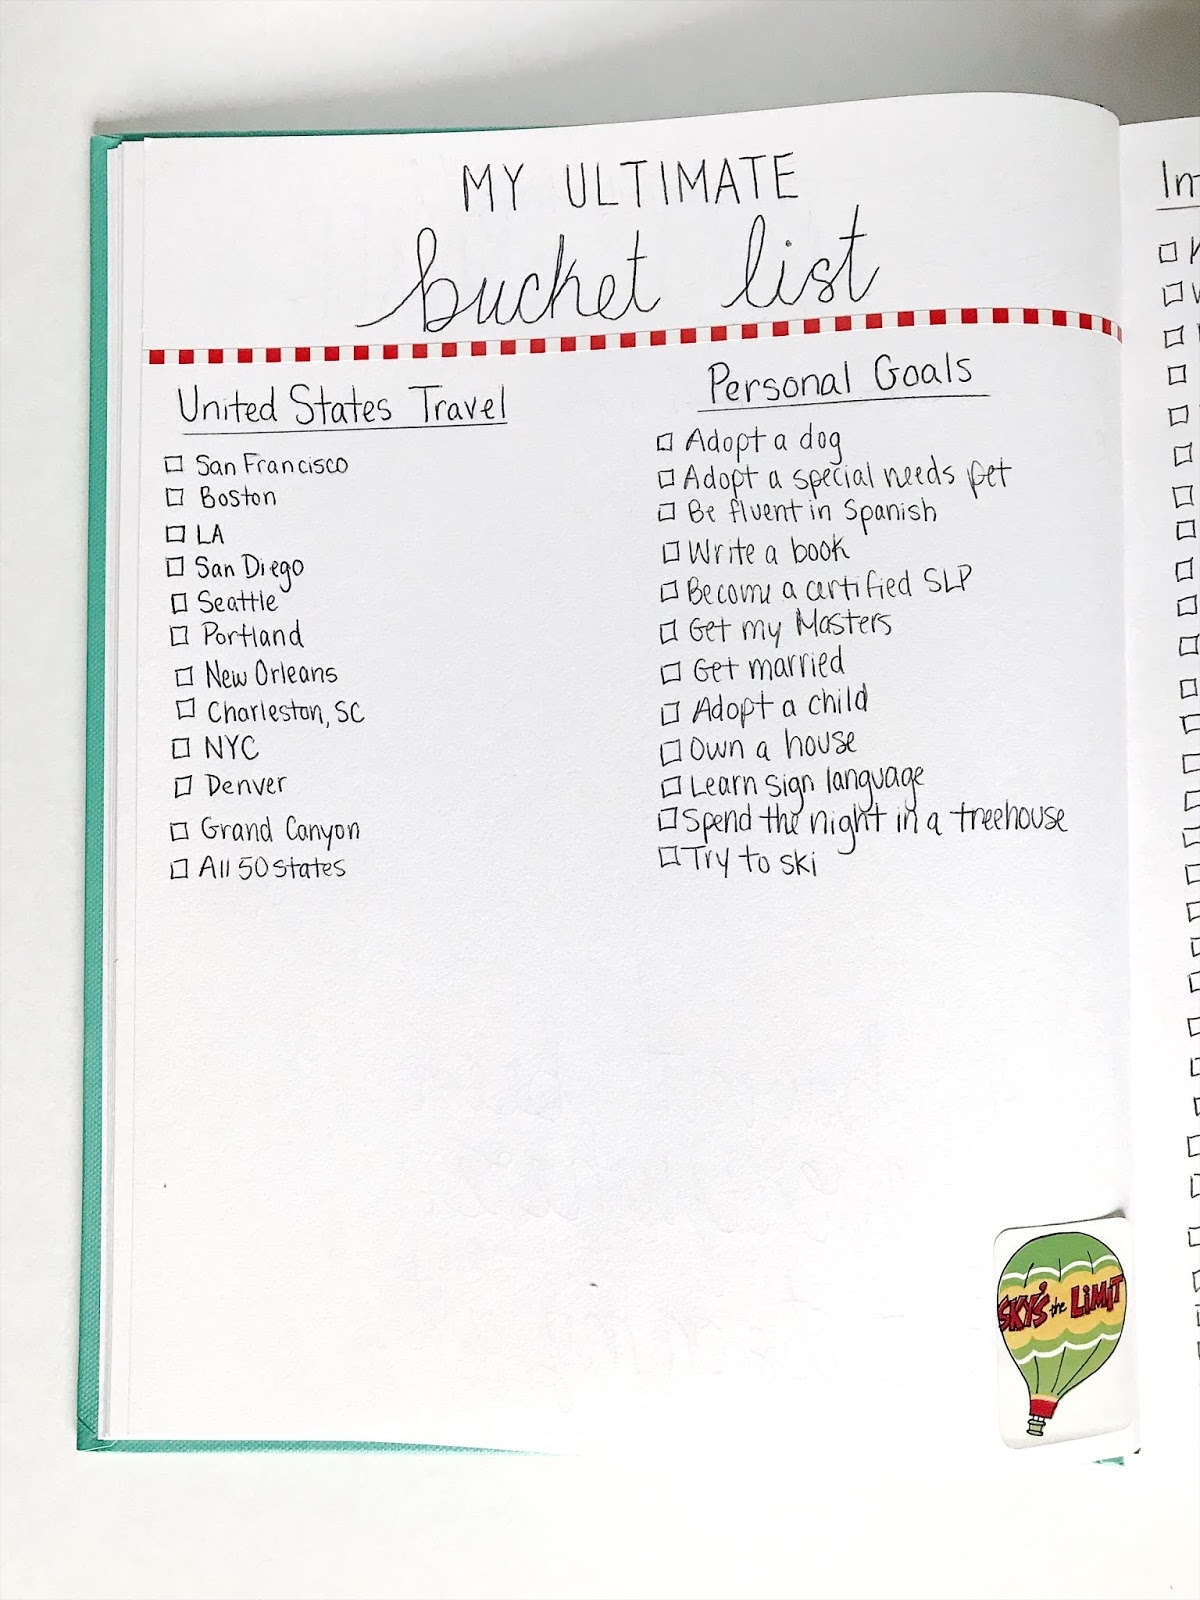 MY ULTIMATE
bucket list
United States Travel
San Francisco
Boston
LA
San Diego
Seattle
Portland
New Orleans
Charleston, SC
NYC
Denver
Grand Canyon
All 50 states
Personal Goals
Adopt a dog
Adopt a special needs pet
Be fluent in Spanish
Write a book
Become a certified SLP
Get my Masters
Get married
Adopt a child
Own a house
Learn sign language
Spend the night in a treehouse
Try to ski
SKY'S the LiMIT